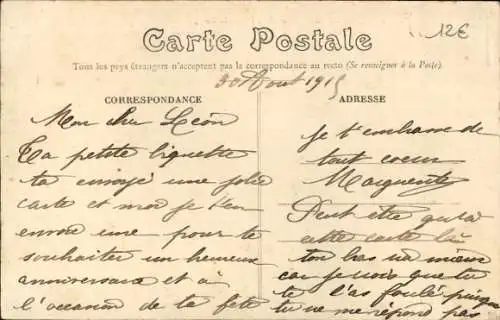 12€
Carte Postale
Tous les pays étrangers n'acceptent pas la correspondance au recto (Se renseigner à la Poste).
30 Aout 1915
CORRESPONDANCE
Mon cher Léon
Ta petite
ta envoyé une jolie
carte et moi je t'en
envoie une pour te
souhaiter un heureux
anniversaire et à
l'occasion de ta fête
ADRESSE
Je t'embrasse de
tout coeur
Marguerite
Peut être qu'à
cette carte là
ton bas va mieux
car je vois que tu
te l'as foulé puisque
tu ne me répond pas